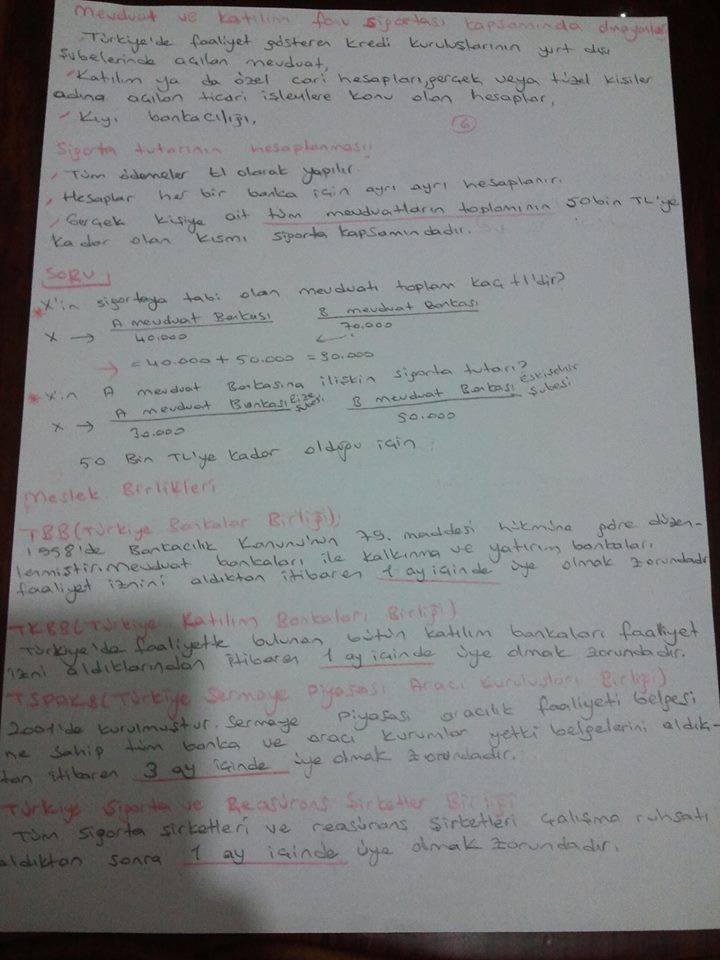 Mevduat ve katılım fonu sigortası kapsamında olmayanlar
Türkiye'de faaliyet gösteren kredi kuruluşlarının yurt dışı
şubelerinde açılan mevduat,
Katılım ya da özel cari hesapları, gerçek veya tüzel kişiler
adına açılan ticari işlemlere konu olan hesaplar,
Kıyı bankacılığı,
6
Sigorta tutarının hesaplanması;
Tüm ödemeler tl olarak yapılır.
Hesaplar her bir banka için ayrı ayrı hesaplanır.
Gerçek kişiye ait tüm mevduatların toplamının 50 bin TL'ye
kadar olan kısmı sigorta kapsamındadır.
SORU
* X'in sigortaya tabi olan mevduatı toplam kaç tl'dir?
A mevduat Bankası B mevduat Bankası
X → 40.000 70.000
→ = 40.000 + 50.000 = 90.000
* X'in A mevduat Bankasına ilişkin sigorta tutarı?
A mevduat Bankası Rize şubesi B mevduat Bankası Eskişehir şubesi
X → 30.000 50.000
50 Bin TL'ye kadar olduğu için
Meslek Birlikleri
TBB (Türkiye Bankalar Birliği);
1958'de Bankacılık Kanunu'nun 79. maddesi hükmüne göre düzen-
lenmiştir. Mevduat bankaları ile kalkınma ve yatırım bankaları,
faaliyet iznini aldıktan itibaren 1 ay içinde üye olmak zorundadır
TKBB (Türkiye Katılım Bankaları Birliği)
Türkiye'de faaliyette bulunan bütün katılım bankaları faaliyet
izni aldıklarından itibaren 1 ay içinde üye olmak zorundadır.
TSPAKB (Türkiye Sermaye Piyasası Aracı Kuruluşları Birliği)
2001'de kurulmuştur. Sermaye piyasası aracılık faaliyeti belgesi
ne sahip tüm banka ve aracı kurumlar yetki belgelerini aldık-
tan itibaren 3 ay içinde üye olmak zorundadır.
Türkiye Sigorta ve Reasürans Şirketler Birliği
Tüm sigorta şirketleri ve reasürans şirketleri çalışma ruhsatı
aldıktan sonra 1 ay içinde üye olmak zorundadır.